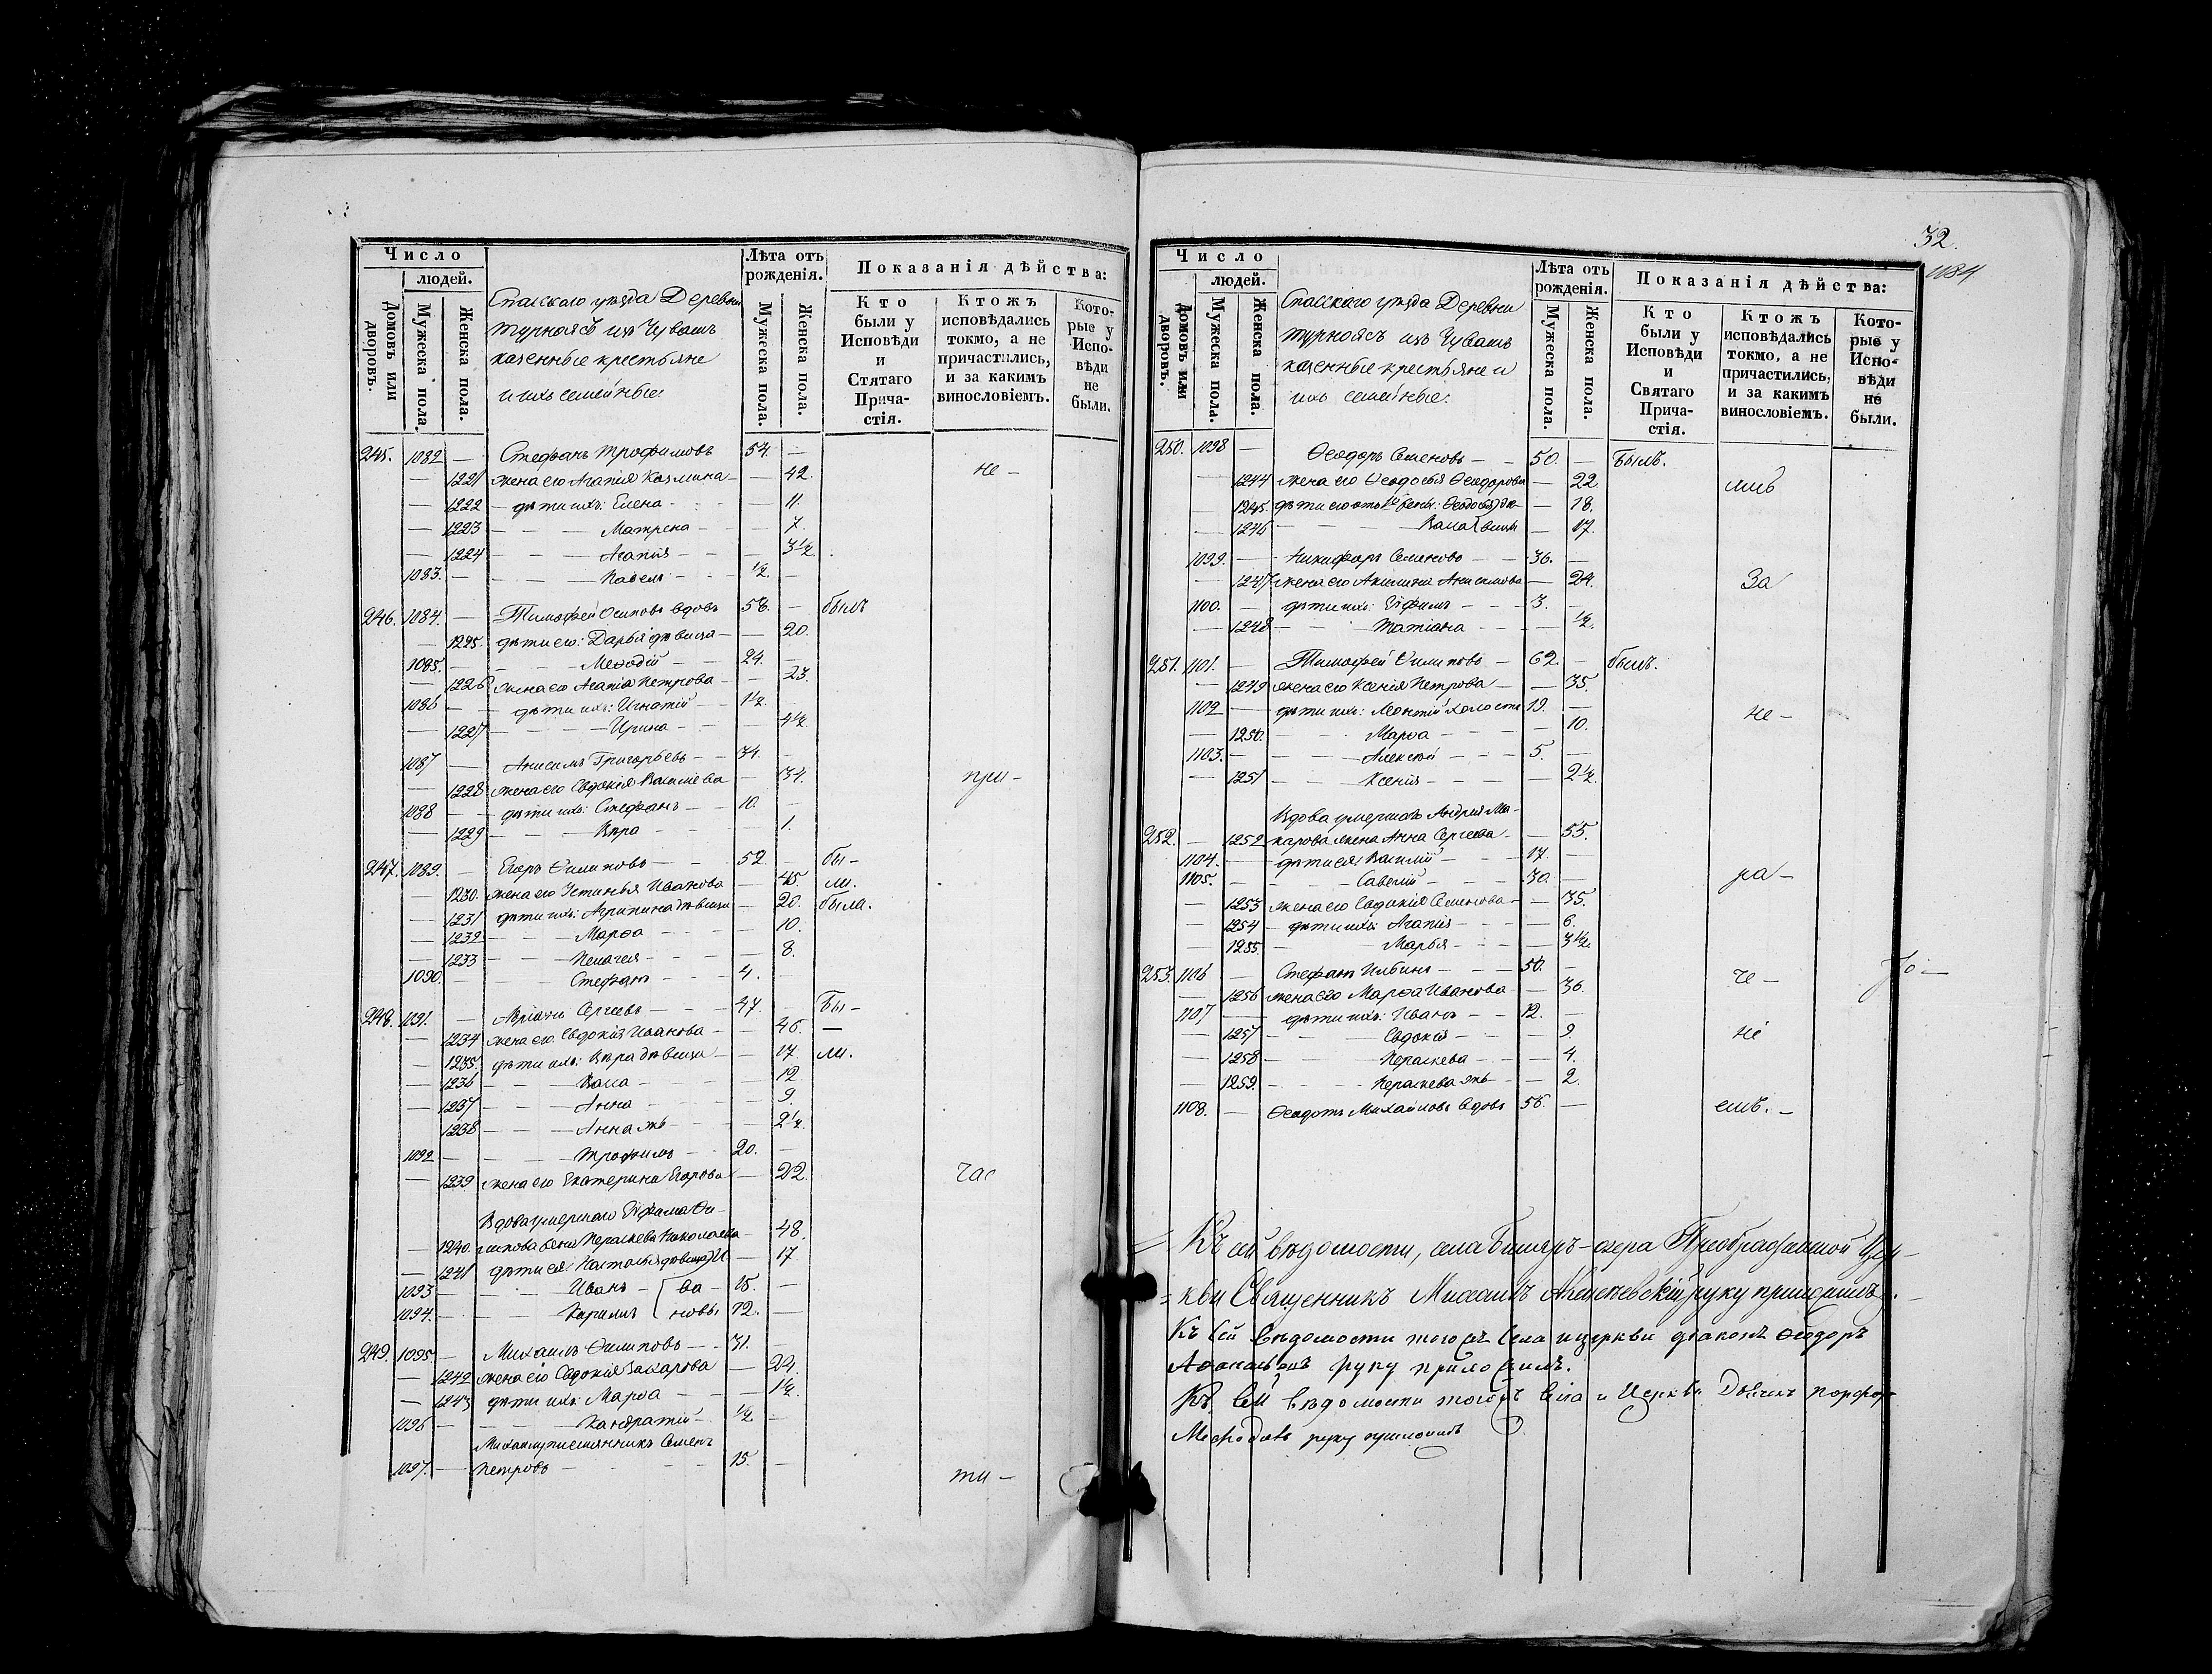 Число
людей.
Домовъ или дворовъ.
Мужеска пола.
Женска пола.
Спасскаго уѣзда Деревни
Турноясъ изъ Чувашъ
казенные крестьяне
и ихъ семейные:
Лѣта отъ рожденія.
Мужеска пола.
Женска пола.
Показанія дѣйства:
Кто были у Исповѣди и Стятаго Прича-стія.
Ктожъ исповѣдались токмо, а не причастились, и за какимъ винословіемъ.
Кото-рые у Испо-вѣди не были.
245. 1082 — Стефанъ Трофимовъ 54. —
— 1221 жена его Агапія Козмина — — 42. не —
— 1222 — дѣти ихъ: Елена — — 11.
— 1223 — — Матрена — — 7.
— 1224 — — Агапія — — 3½.
1083. — — — Павелъ — ½. —
246. 1084. — Тимофей Осиповъ вдовъ 58. — былъ
— 1225. дѣти его: Дарья дѣвица — — 20.
1085. — — — Меѳодій — 24. —
— 1226 жена его Агапія Петрова — — 23.
1086 — — дѣти ихъ: Игнатій — 1½.
— 1227 — — Ирина — — 4½
1087 — Анисимъ Григорьевъ — 34. —
— 1228 жена его Евдокія Васильева — 34. при —
1088 — — дѣти ихъ: Стефанъ — 10. —
— 1229 — — Вѣра — — 1.
247. 1089. — Егоръ Филиповъ — 52. — бы —
— 1230. жена его Устинья Иванова — 45. ли.
— 1231 дѣти ихъ: Агрипина дѣвица — 20. была.
— 1232 — — Марѳа — — 10.
— 1233 — — Пелагея — — 8.
1090. — — Стефанъ — 4. —
248. 1091. — Сергеевъ — 47. — Бы —
— 1234 жена его Евдокія Иванова — — 46. —
— 1235. дѣти ихъ: Вѣра дѣвица — — 17. ли.
— 1236 — — Васа — — 12
— 1237 — — Анна — — 9.
— 1238 — — Анна жъ — — 2½.
1092 — — — Трофимъ — 20. —
— 1239 жена его Екатерина Егорова — 22. час
Вдова умершаго Ефима Фи-
— 1240. липова жена Пераскева Николаева — 48.
— 1241 дѣти ея: Настасья дѣвица И — 17
1093 — — Иванъ — ва — 15. —
1094. — — Кирилъ новы 12. —
249. 1095 — Михаилъ Филиповъ — 31. —
— 1242 жена его Евдокія Захарова — 24.
— 1243 дѣти ихъ: Марѳа — — 1½.
1096 — — Кандратій — ½. —
Михаилу племянникъ Семенъ
1097. — Петровъ — 15. — ти —
32.
1184
Число
людей.
Домовъ или дворовъ.
Мужеска пола.
Женска пола.
Спасскаго уѣзда Деревни
Турноясъ изъ Чувашъ
казенные крестьяне и
ихъ семейные:
Лѣта отъ рожденія.
Мужеска пола.
Женска пола.
Показанія дѣйства:
Кто были у Исповѣди и Святаго Прича-стія.
Ктожъ исповѣдались токмо, а не причастились, и за какимъ винословіемъ.
Кото-рые у Испо-вѣди не были.
250. 1098 — Ѳеодоръ Семеновъ — 50. — Былъ.
— 1244 жена его Ѳеодосья Ѳеодорова — 22.
— 1245. дѣти его отъ 1й жены: Ѳеодосья — 18.
— 1246 — — Васа — 17.
1099. — Никифоръ Семеновъ — 36. —
— 1247 жена его Акилина Анисимова — 24. За
1100. — дѣти ихъ: Ефимъ — 3. —
— 1248 — Татіана — — ½.
251. 1101. — Тимофей Филиповъ — 62. — былъ.
— 1249 жена его Ксенія Петрова — — 35.
1102 — дѣти ихъ: холостъ 19. — не —
— 1250. — Марѳа — — 10.
1103. — — Алексѣй — 5. —
— 1251 — Ксенія — — 2½.
Вдова умершаго Андрея Ма-
252. — 1252 карова жена Анна Сергеева — — 55.
1104. — дѣти ея Василій — 17. —
1105. — — Савелій — 30. — ра —
— 1253 жена его Евдокія Семенова — — 35.
— 1254 — дѣти ихъ: Агапія — — 6.
— 1255 — Марья — — 3½.
253. 1106 — Стефанъ Ильинъ — 50. —
— 1256 жена его Марѳа Иванова — 36. че —
1107 — дѣти ихъ: Иванъ — 12. —
— 1257 — — Евдокія — — 9. ні
— 1258 — Пераскева — — 4.
— 1259. — — Пераскева жъ — — 2.
1108. — Ѳеодотъ Михайловъ вдовъ 56. — емъ. —
Къ сей вѣдомости, села Биляръ-озера Преображенской Цер-
кви Священникъ Михаилъ руку приложилъ.
Къ сей вѣдомости тогожъ села и церкви діаконъ Ѳеодоръ
руку приложилъ.
Къ сей вѣдомости тогожъ села и Церкви Дьячекъ
руку приложилъ